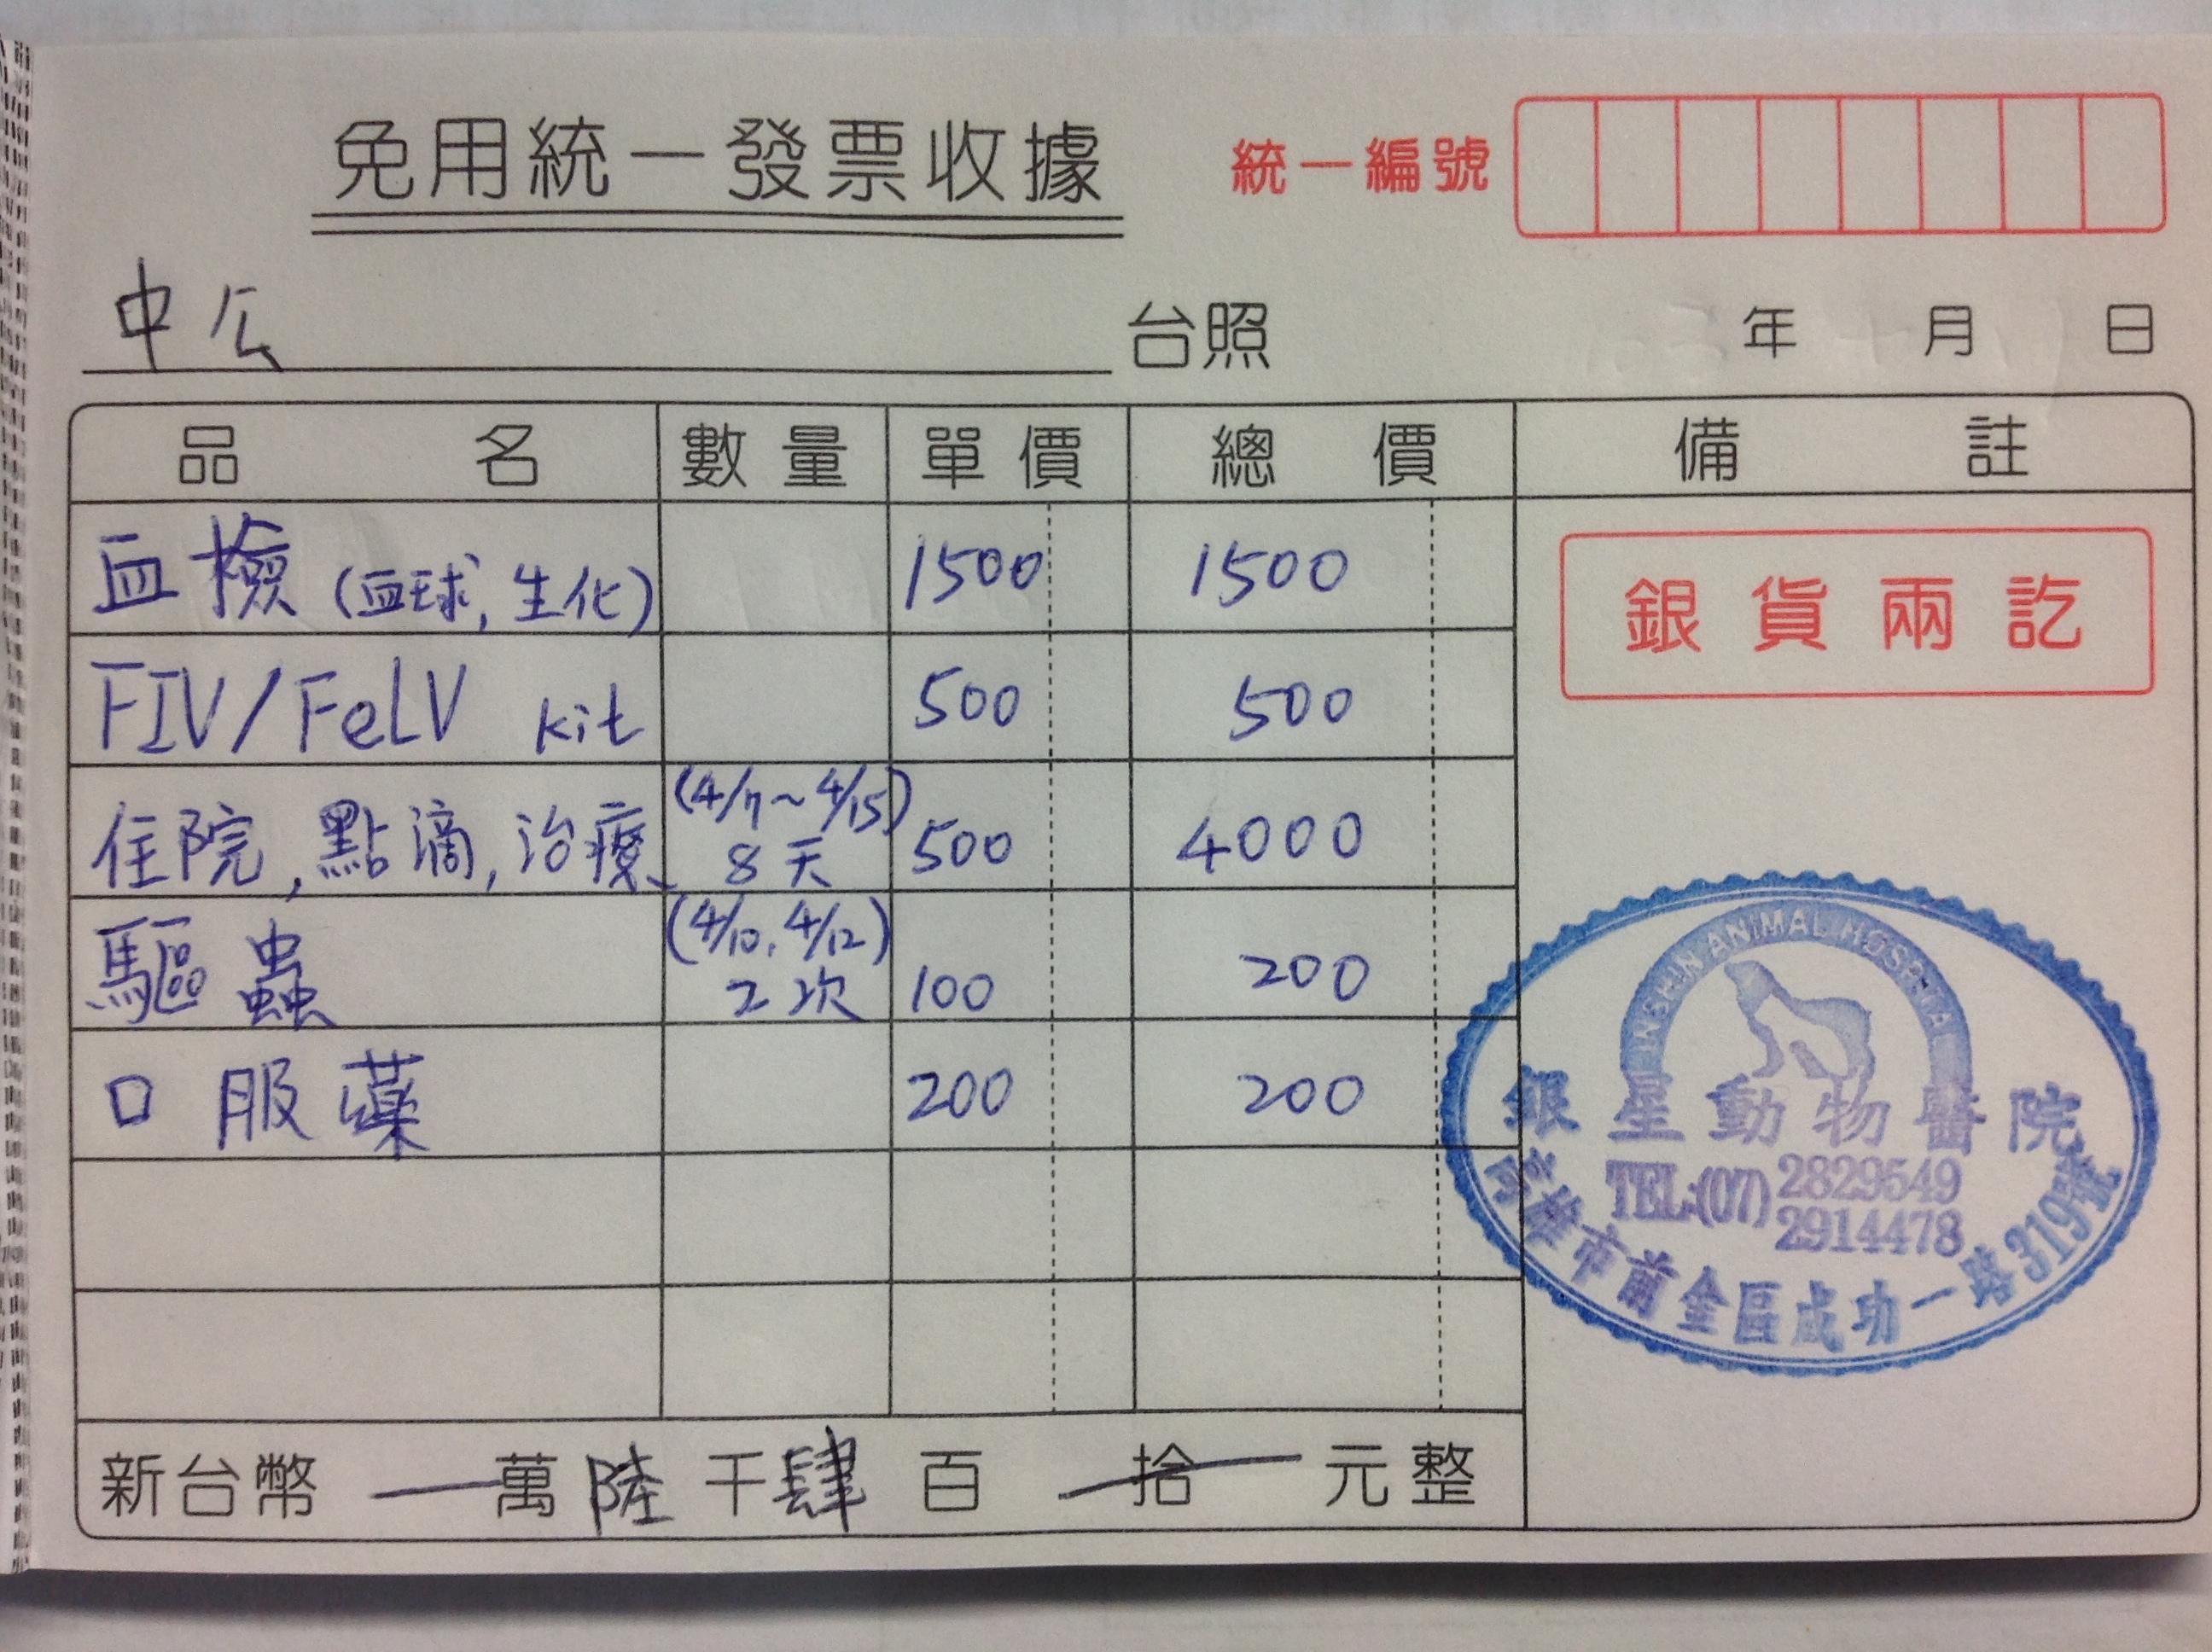 免用統一發票收據
統一編號
中公 台照
年 月 日
品名 數量 單價 總價 備註
血檢 (血球, 生化) 1500 1500
銀貨兩訖
FIV/FeLV kit 500 500
住院, 點滴, 治療 (4/7~4/15) 8天 500 4000
驅蟲 (4/10, 4/12) 2次 100 200
口服藥 200 200
ANIMAL HOSPITAL
銀星動物醫院
TEL:(07) 2829549
2914478
高雄市前金區成功一路319號
新台幣 萬陸千肆百 拾 元整